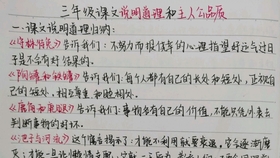 三年级课文说明道理和主人公品质
一.课文说明道理归纳:
《守株待兔》告诉我们:不努力而报侥幸的心理指望好运气过日
子是不会有好结果的。
《陶罐和铁罐》告诉我们:每个人都有自己的长处和短处,正视自
己的短处,相互尊重,和睦相处。
《鹿角和鹿腿》告诉我们:事物各有自己的价值,不能只凭外表去
判断事物的好坏。
《池子与河流》这个寓言揭示了:才能不利用就要衰退,它会逐渐磨